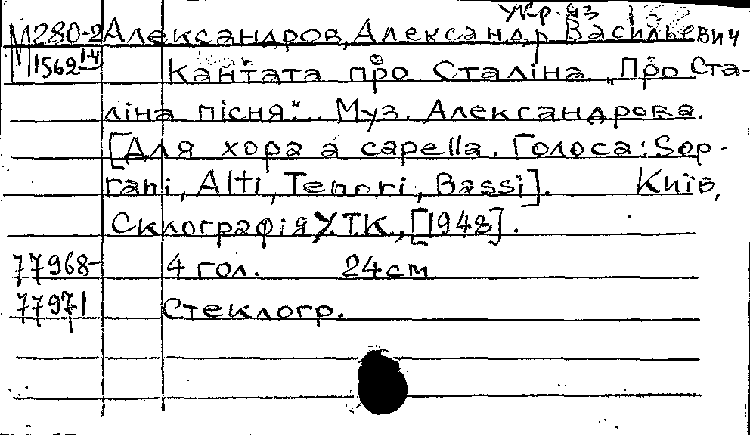 Укр. яз
М280-2 Александров, Александр Васильевич
М1562 1-4 Кантата про Сталіна „Про Ста-
ліна пісня". Муз. Александрова.
[Для хора a capella. Голоса: Sop-
rani, Alti, Tenori, Bassi]. Київ,
Склографія У.Т.К., [1948].
77968- 4 гол. 24 cm
77971 Стеклогр.